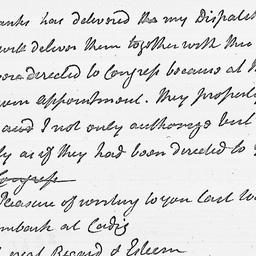 anks has delivered tho my Dispatch
will deliver them together with this
were directed to Congress because at
own appointment. they properly
and I not only authorize but
ly as if they had been directed to y
Congress
Pleasure of writing to you last We
mbark at Cadiz
great Regard & Esteem